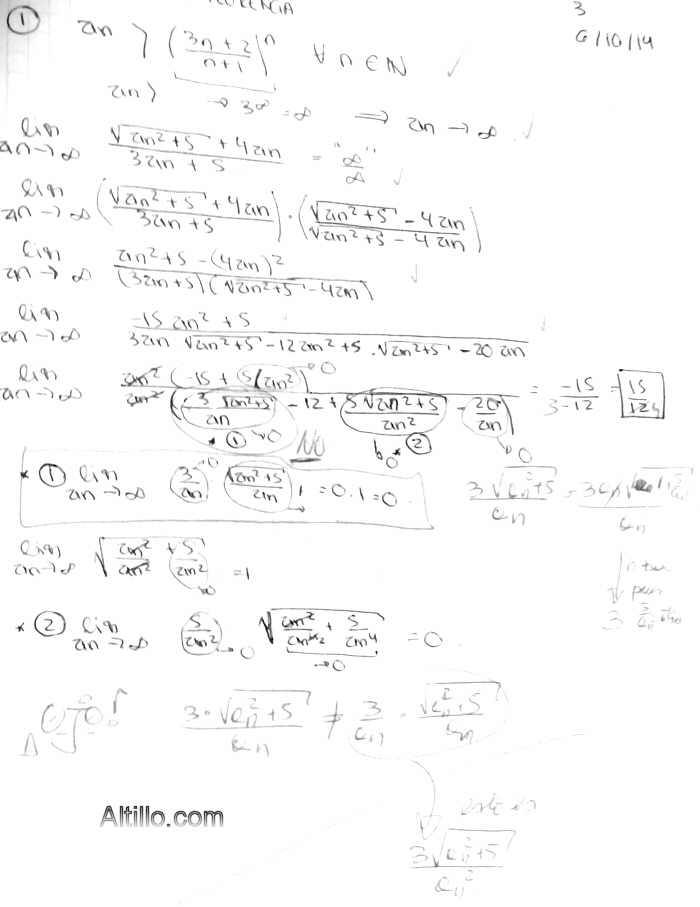 ① 3
an > (3n+2/n+1)^n ∀ n ∈ ℕ ✓ 6/10/14
an > → 3^∞ = ∞ ⟹ an → ∞ ✓
lim an→∞ √(an²+5) + 4an / 3an + 5 = "∞/∞" ✓
lim an→∞ (√(an²+5) + 4an / 3an+5) · (√(an²+5) - 4an / √(an²+5) - 4an)
lim an→∞ an²+5 - (4an)² / (3an+5)(√(an²+5) - 4an) ✓
lim an→∞ -15 an² + 5 / 3an √(an²+5) - 12an² + 5 · √(an²+5) - 20 an
lim an→∞ an² (-15 + 5/an²) → 0 / an² (3 √(an²+5) / an - 12 + 5√(an²+5) / an² - 20/an) = -15 / 3-12 = 15/12
* ① → 0 No * ② → 0
* ① lim an→∞ 3/an → 0 √(an²+5) / an → 1 = 0 . 1 = 0 3√(en²+5) / en
lim an→∞ √(an²/an² + 5/an²) → 0 = 1
* ② lim an→∞ 5/an² → 0 √(an²/an⁴ + 5/an⁴) → 0 = 0
3·√(en²+5) / en ≠ 3/en · √(en²+5) / en
este es
3√(en²+5) / en²
Altillo.com